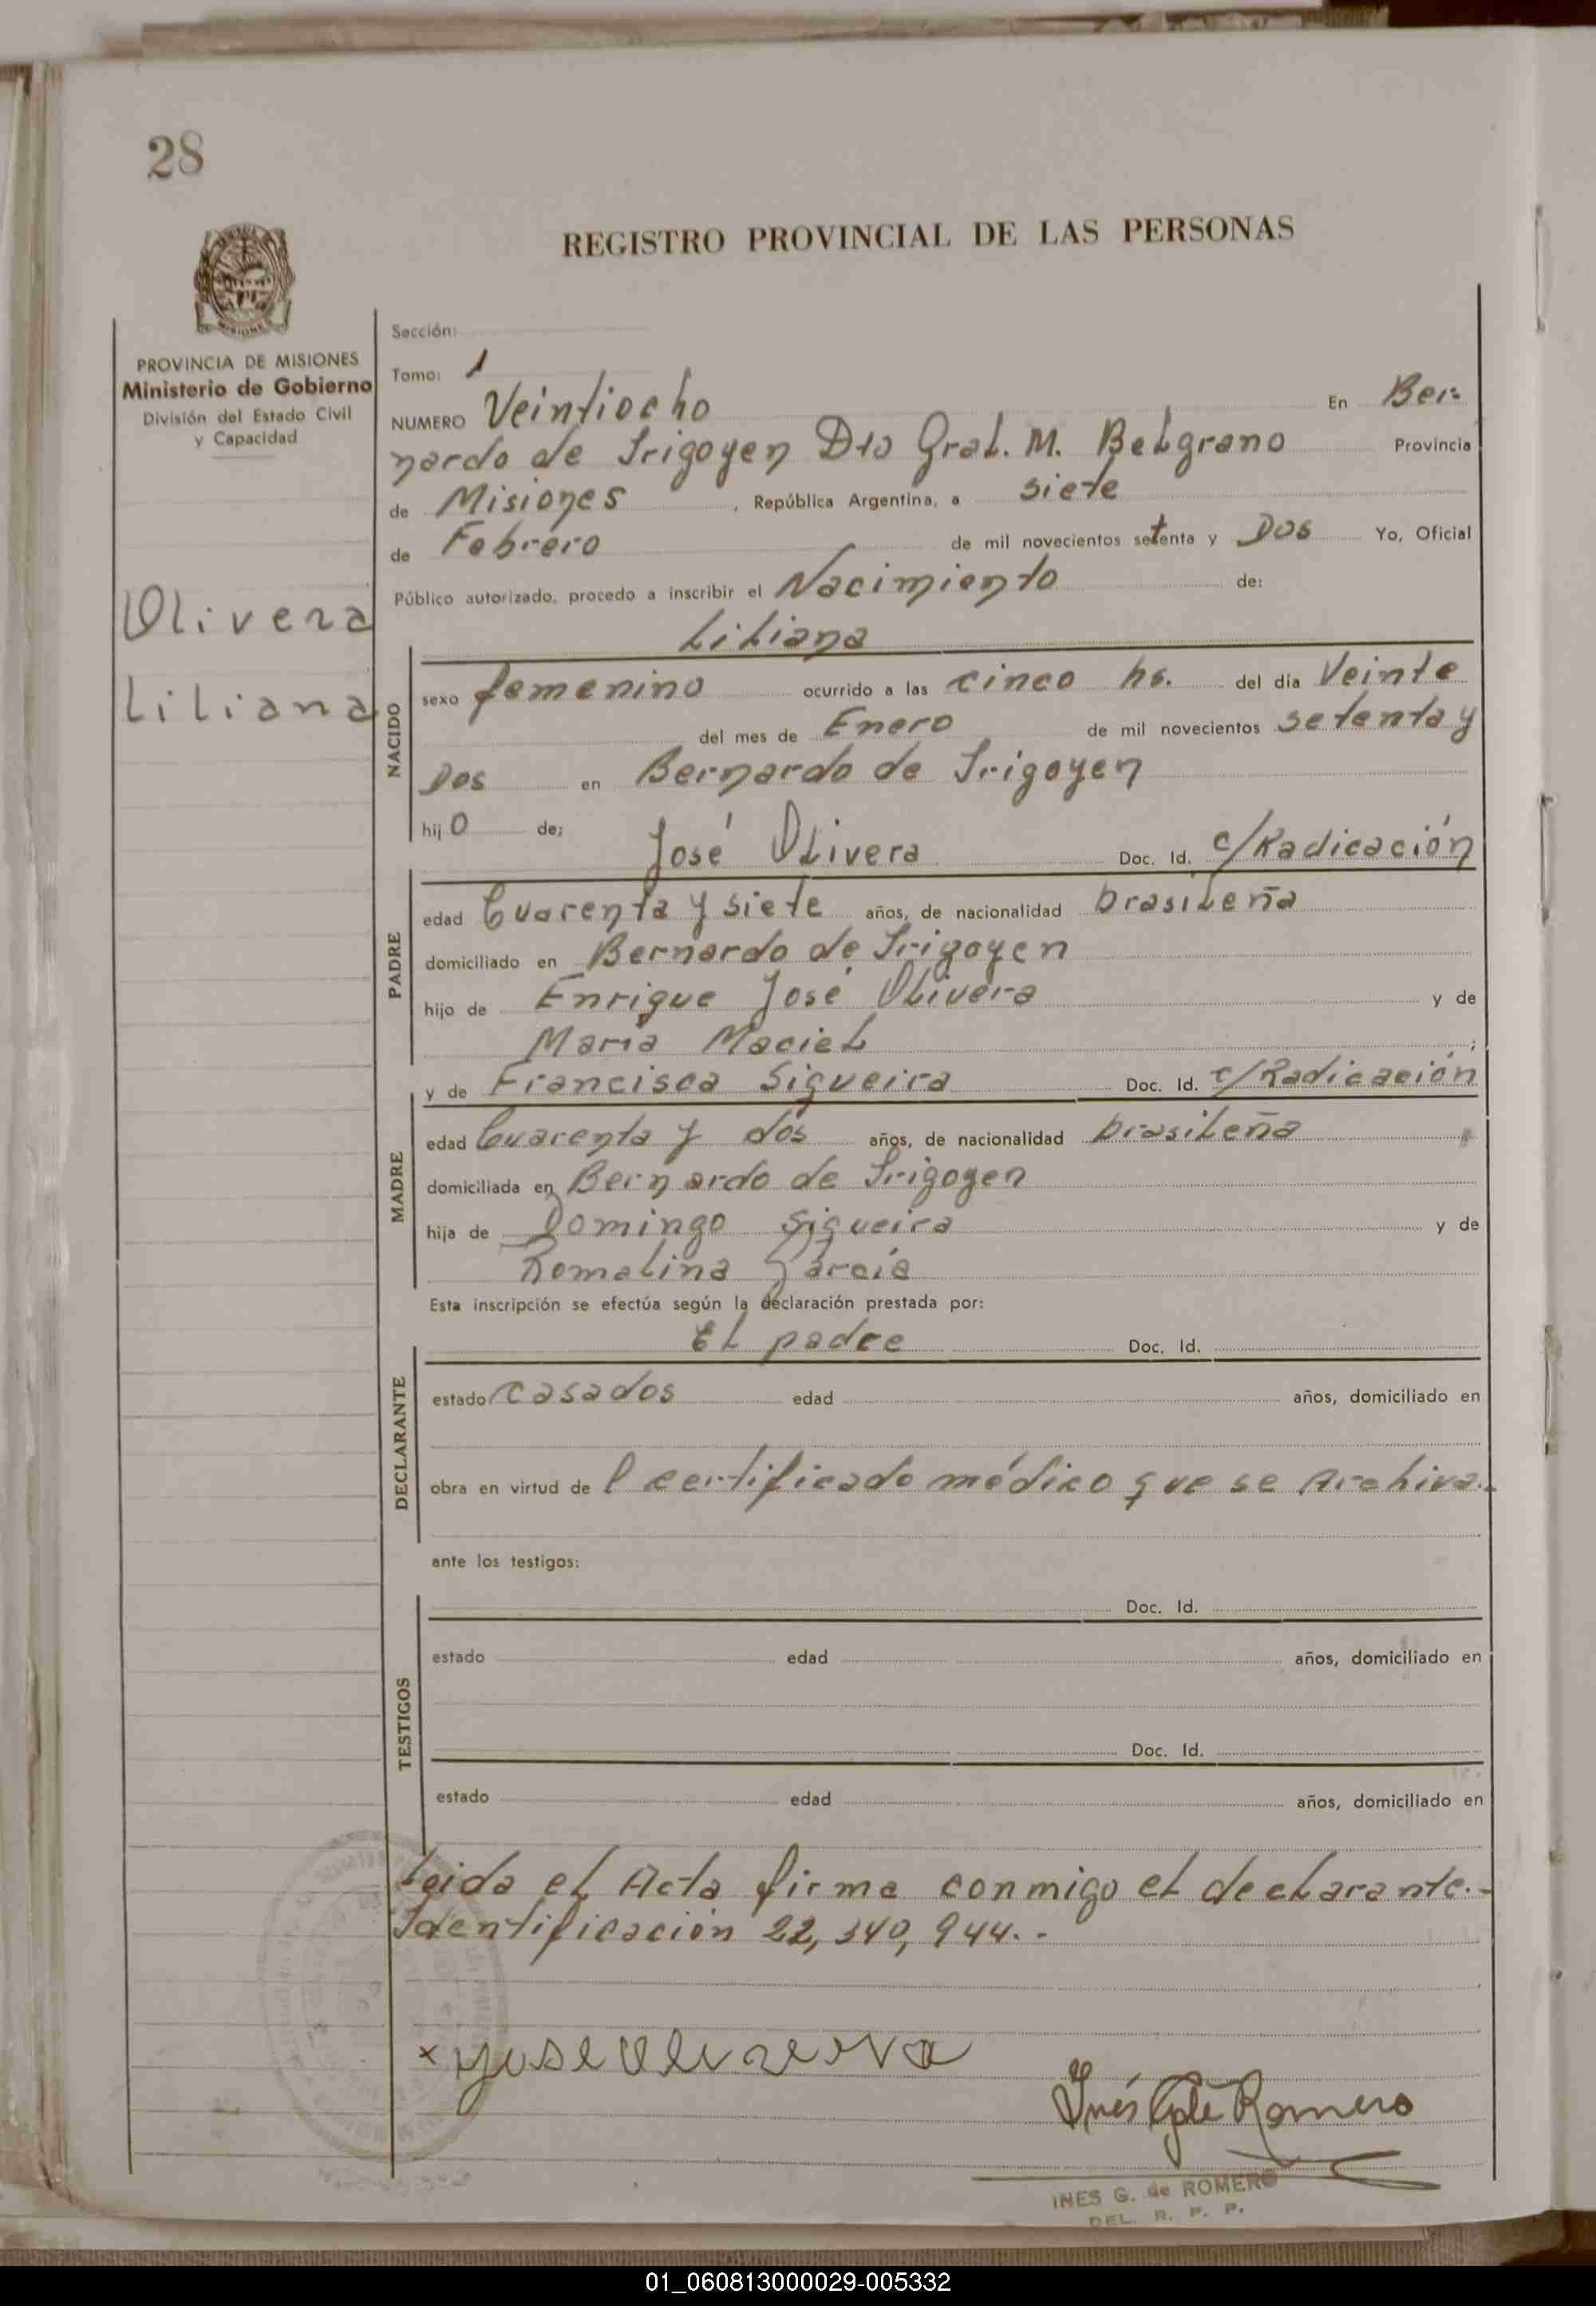 28
REGISTRO PROVINCIAL DE LAS PERSONAS
MISIONES
PROVINCIA DE MISIONES
Ministerio de Gobierno
División del Estado Civil
y Capacidad
Olivera
Liliana
Sección:
Tomo: 1
NUMERO Veintiocho En Ber-
nardo de Irigoyen Dto Gral. M. Belgrano Provincia
de Misiones, República Argentina, a siete
de Febrero de mil novecientos setenta y Dos Yo, Oficial
Público autorizado, procedo a inscribir el Nacimiento de:
Liliana
NACIDO
sexo femenino ocurrido a las cinco hs. del día Veinte
del mes de Enero de mil novecientos setenta y
Dos en Bernardo de Irigoyen
hijo de;
José Olivera Doc. Id. c/Radicación
PADRE
edad Cuarenta y siete años, de nacionalidad brasileña
domiciliado en Bernardo de Irigoyen
hijo de Enrique José Olivera y de
María Maciel;
y de Francisca Siqueira Doc. Id. c/Radicación
MADRE
edad Cuarenta y dos años, de nacionalidad brasileña
domiciliada en Bernardo de Irigoyen
hija de Domingo Siqueira y de
Romalina García
Esta inscripción se efectúa según la declaración prestada por:
El padre Doc. Id.
DECLARANTE
estado casados edad años, domiciliado en
obra en virtud de l certificado médico que se Archiva.-
ante los testigos:
Doc. Id.
TESTIGOS
estado edad años, domiciliado en
Doc. Id.
estado edad años, domiciliado en
Leida el Acta firma conmigo el declarante.-
Identificación 22,340,944.-
x
Inés Romero
INES G. de ROMERO
DEL. R. P. P.
01_060813000029-005332